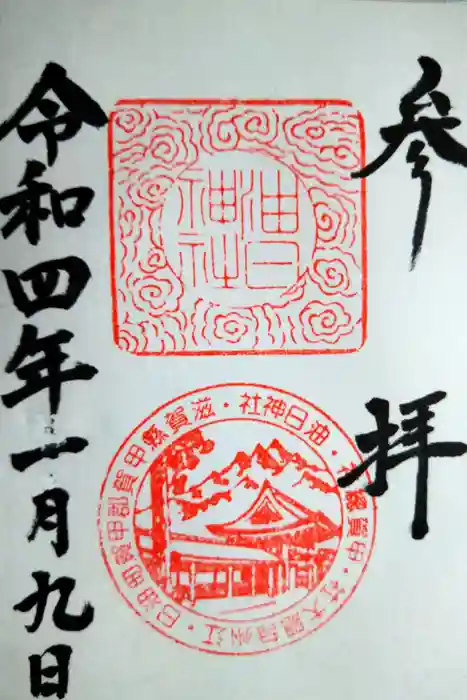 参拝
油日神社
油日神社・滋賀縣甲賀
令和四年一月九日